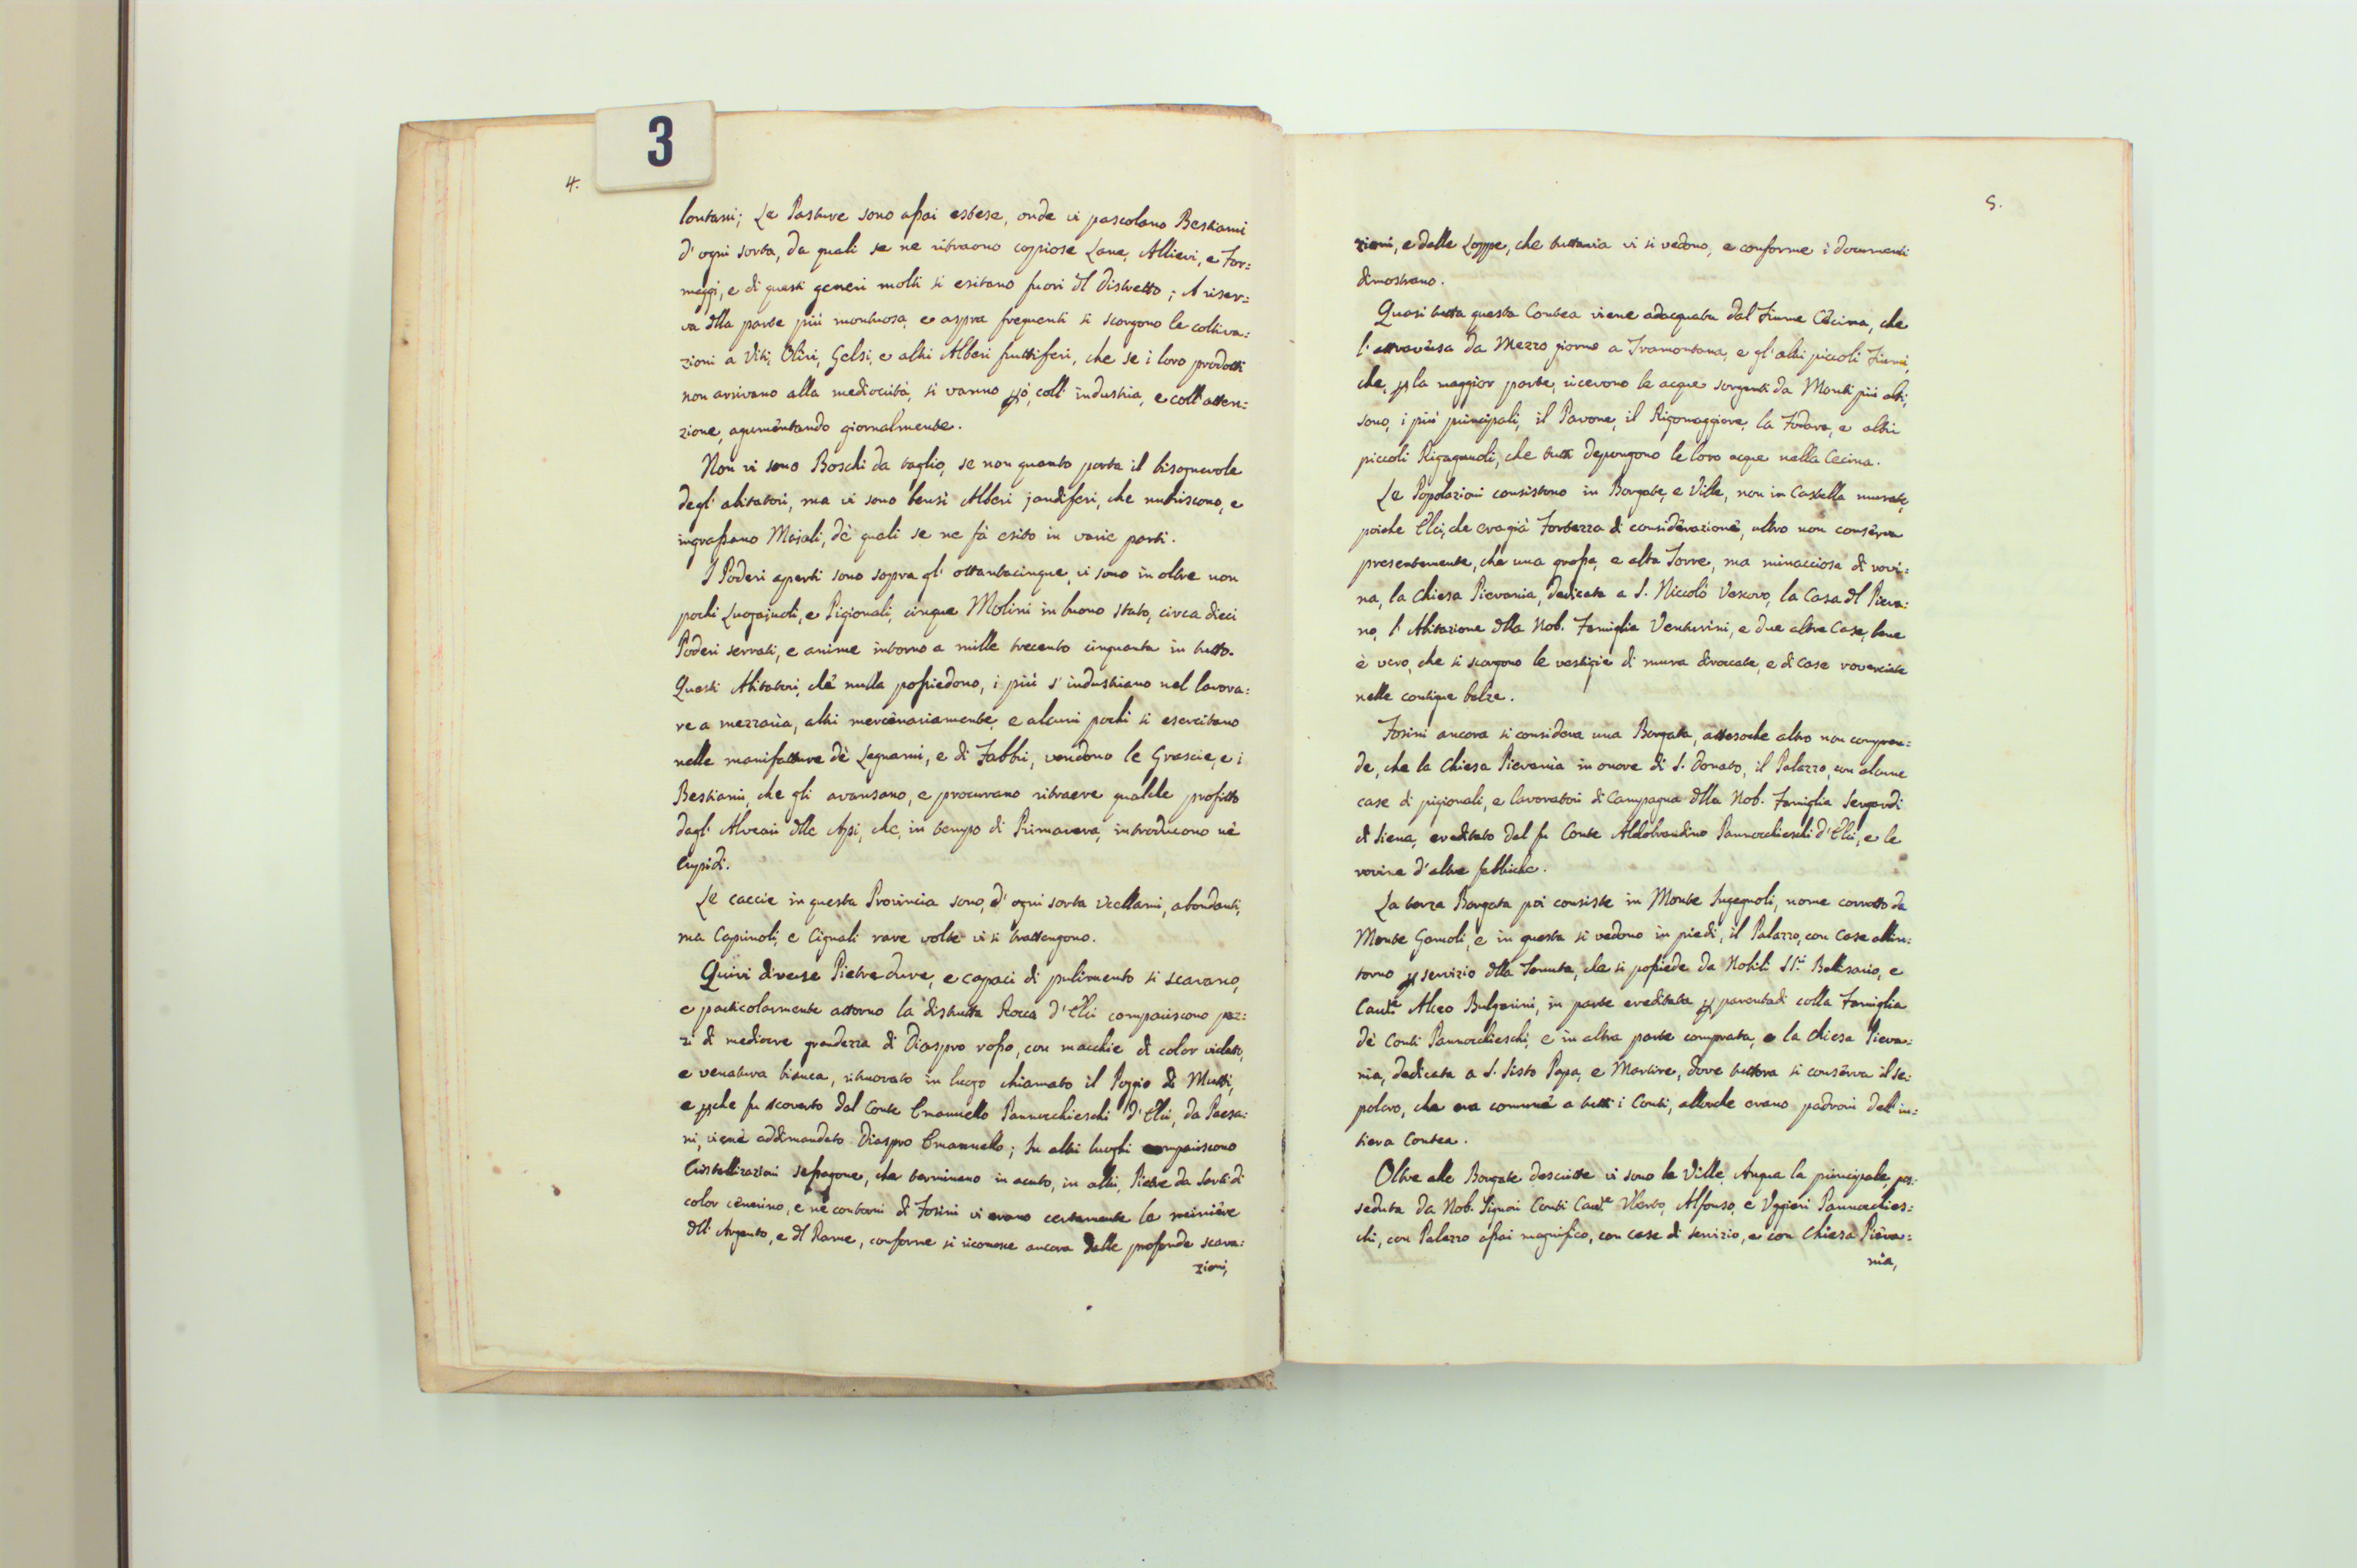 3
4.
lontani; Le Pasture sono assai estese, onde vi pascolano Bestiami
d'ogni sorta, da quali se ne ritraono coppiose Lane, Allievi, e For=
maggi, e di questi generi molti si esitano fuori dl Distretto; A riser=
va dlla parte più montuosa, e aspra frequenti si scorgono le coltiva=
zioni a Viti, Olivi, Gelsi, e altri Alberi fruttiferi, che se i loro prodotti
non arrivano alla mediocrità, si vanno pò, coll'industria, e coll'atten=
zione, agumentando giornalmente.
Non vi sono Boschi da taglio, se non quanto porta il bisognevole
degl'abitatori, ma vi sono bensì Alberi jandiferi, che nutriscono, e
ingrassano Majali, dè quali se ne fà esito in varie parti.
I Poderi aperti sono sopra gl'ottantacinque, vi sono in oltre non
pochi Luogajuoli, e Pigionali, cinque Molini in buono stato, circa dieci
Poderi serrati, e anime intorno a mille trecento cinquanta in tutto.
Questi Abitatori, chè nulla possiedono, i più s'industriano nel lavora=
re a mezzaria, altri mercenariamente, e alcuni pochi si esercitano
nelle manifatture dè Legnami, e di Fabbri, vendono le Grascie, e i
Bestiami, che gli avanzano, e procurano ritraere qualche profitto
dagl'Alveari dlle Api, che, in tempo di Primavera, introducono nè
Cupidi.
Le caccie in questa Provincia sono, d'ogni sorta Uccllami, abondanti,
ma Capriuoli, e Cignali rare volte vi si trattengono.
Quivi diverse Pietre dure, e capaci di pulimento si scavano,
e particolarmente attorno la distrutta Rocca d'Elci compariscono pez=
zi di mediocre grandezza di Diaspro rosso, con macchie di color violato,
e venatura bianca, ritruovato in luogo chiamato il Poggio di Mutti,
e pche fu scoverto dal Conte Emanuello Pannocchieschi d'Elci, da Paesa=
ni, viene addimandato Diaspro Emanuello; In altri luoghi compariscono
Cristallizazioni sessagone, che terminano in acuto, in altri, Pietre da Sarti di
color cènerino, e nè contorni di Fosini vi erano certamente le minière
dll'Argento, e dl Rame, conforme si riconosce ancora dalle profonde scava=
zioni,
5.
zioni, e dalle Loppe, che tuttavia vi si vedono, e conforme i documenti
dimostrano.
Quasi tutta questa Contea viene adacquata dal Fiume Cècina, che
l'attraversa da Mezzo giorno a Tramontana, e gl'altri piccoli Fiumi,
che, p la maggior parte, ricevono le acque sorgenti da Monti più alti,
sono, i più principali, il Pavone, il Rigomaggiore, la Fodara, e altri
piccoli Rigagnuoli, che tutti depongono le loro acque nella Cecina.
Le Popolazioni consistono in Borgate, e Ville, non in Castella murate,
poiche Elci, che era già Fortezza di considerazionè, altro non consèrva
presentemente, che una grossa, e alta Torre, ma minacciosa di rovi=
na, la Chiesa Pievania, dedicata a S. Niccolò Vescovo, la Casa dl Pieva=
no, l'Abitazione dlla Nob. Famiglia Venturini, e due altre Case, bene
è vero, che si scorgono le vestigie di mura diroccate, e di Case rovesciate
nelle contigue balze.
Fosini ancora si considera una Borgata, attesoche altro non compren=
de, che la Chiesa Pievania in onore di S. Donato, il Palazzo, con alcune
case di pigionali, e lavoratori di Campagna dlla Nob. Famiglia Sergardi
di Siena, ereditato dal fu Conte Aldobrandino Pannocchieschi d'Elci, e le
rovine d'altre fabbriche.
La terza Borgata poi consiste in Monte Ingegnoli, nome corrotto da
Monte Gomoli, e in questa si vedono in piedi, il Palazzo, con Case allin=
torno p servizio dlla Tenuta, che si possiede da Nobili SS.i Bellisario, e
Caule Alceo Bulgarini, in parte ereditata p parentadi colla Famiglia
dè Conti Pannocchieschi, e in altra parte comprata, e la Chiesa Pieva=
nia, dedicata a S. Sisto Papa, e Martire, dove tuttora si consèrva il Se=
polcro, che era comunè a tutti i Conti, allorche erano padroni dell'in=
tiera Contea.
Oltre alle Borgate descritte vi sono le Ville, Anqua la principale, pos=
seduta da Nob. Signori Conti Caule Uberto, Alfonso, e Uggieri Pannocchies=
chi, con Palazzo assai magnifico, con case di servizio, e con Chiesa Pieva=
nia,